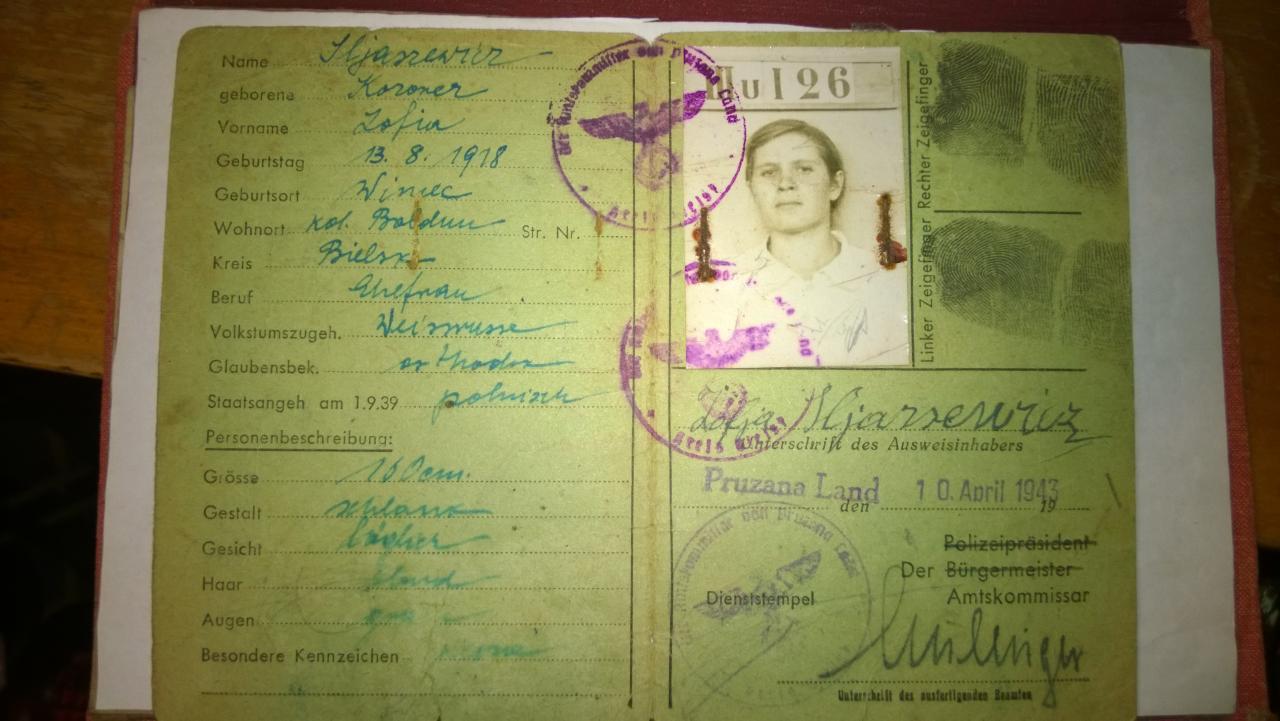 Name Iljaszewicz
geborene Koroner
Vorname Zofia
Geburtstag 13. 8. 1918
Geburtsort Winiec
Wohnort kol. Str. Nr.
Kreis Bielsk
Beruf Ehefrau
Volkstumszugeh. Weisrusse
Glaubensbek. orthodox
Staatsangeh am 1.9.39 polnisch
Personenbeschreibung:
Grösse 160 cm.
Gestalt schlank
Gesicht
Haar blond
Augen
Besondere Kennzeichen
Der Amtskommissar von Pruzana Land
26
Rechter Zeigefinger
Linker Zeigefinger
Zofja Iljaszewicz
Unterschrift des Ausweisinhabers
Pruzana Land den 10. April 1943 19
Polizeipräsident
Der Bürgermeister
Dienststempel Amtskommissar
Unterschrift des ausfertigenden Beamten